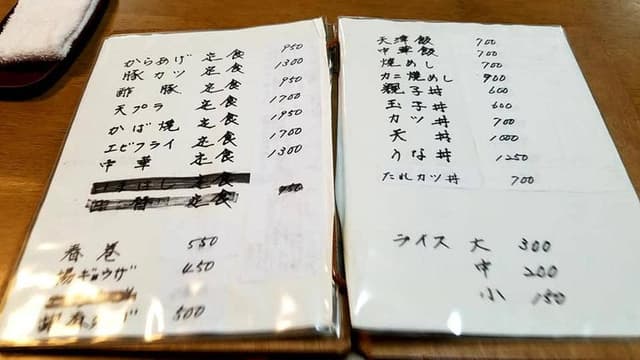 からあげ 定食 950
豚カツ 定食 1300
酢豚 定食 950
天プラ 定食 1700
かば焼 定食 1950
エビフライ 定食 1700
中華 定食 1300
定食
日替 定食 950
春巻 550
揚ギョウザ 450
500
天津飯 700
中華飯 700
焼めし 700
カニ焼めし 900
親子丼 600
玉子丼 600
カツ丼 700
天丼 1000
うな丼 1250
たれカツ丼 700
ライス 大 300
中 200
小 150